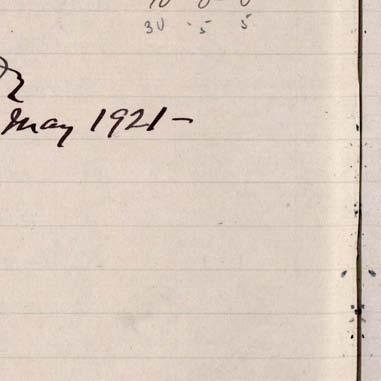 30 · 5 5
May 1921 –